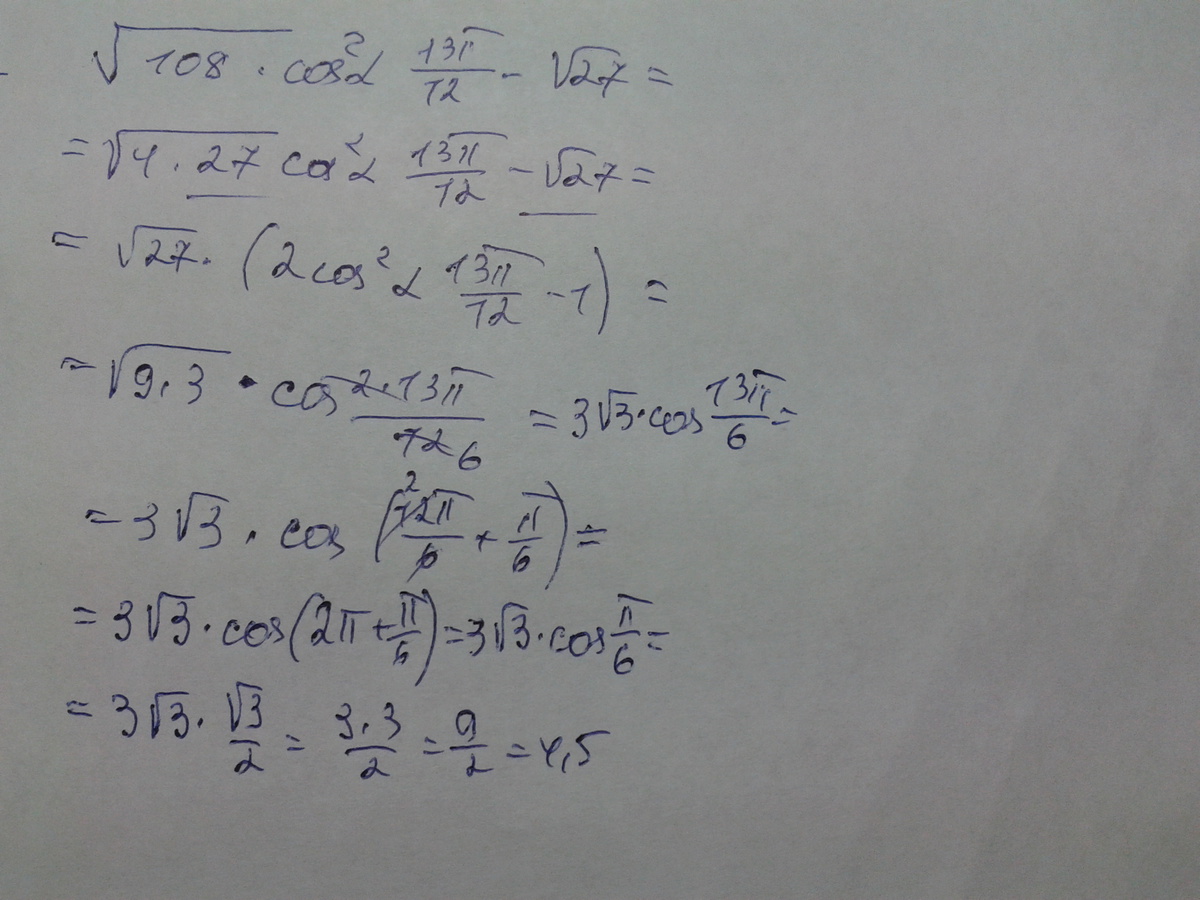 √108 · cos²α 13π/12 - √27 =
= √4 · 27 cos²α 13π/12 - √27 =
= √27 · (2cos²α 13π/12 - 1) =
= √9 · 3 · cos 2 · 13π/12 6 = 3√3 · cos 13π/6 =
= 3√3 · cos (2 12π/6 + π/6) =
= 3√3 · cos (2π + π/6) = 3√3 · cos π/6 =
= 3√3 · √3/2 = 3 · 3/2 = 9/2 = 4,5